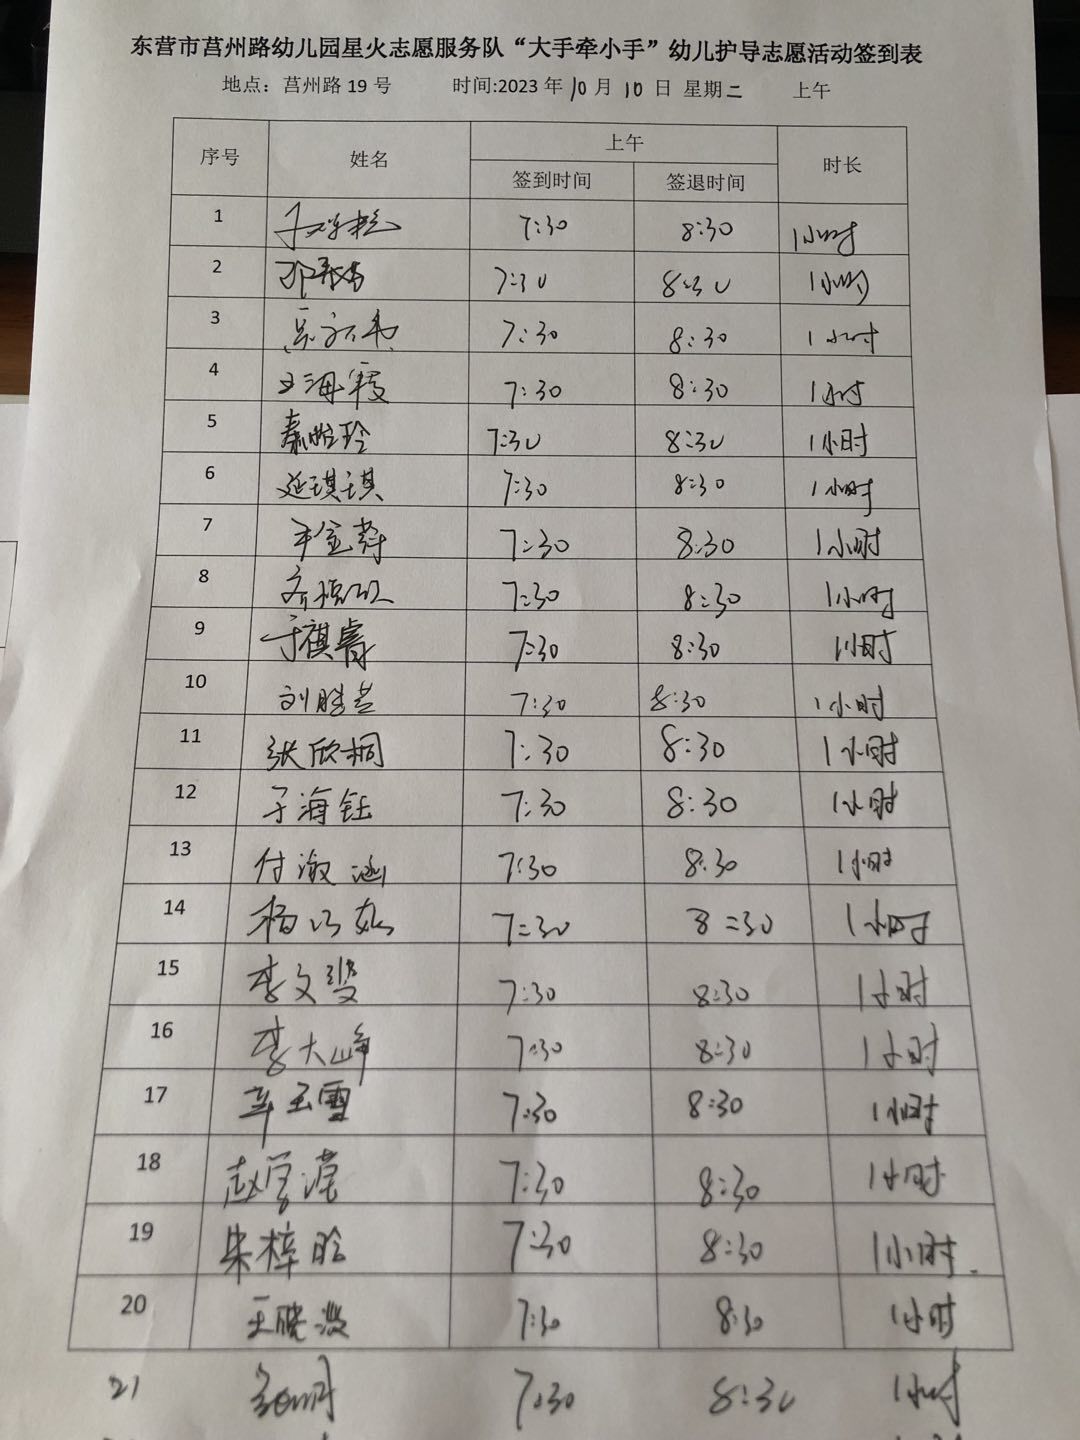 东营市莒州路幼儿园星火志愿服务队“大手牵小手”幼儿护导志愿活动签到表
地点：莒州路 19 号 时间:2023 年 10 月 10 日 星期二 上午
序号 姓名 上午 时长
签到时间 签退时间
1 7:30 8:30 1小时
2 7:30 8:30 1小时
3 7:30 8:30 1小时
4 王海霞 7:30 8:30 1小时
5 7:30 8:30 1小时
6 延琪琪 7:30 8:30 1小时
7 7:30 8:30 1小时
8 7:30 8:30 1小时
9 于祺睿 7:30 8:30 1小时
10 7:30 8:30 1小时
11 张欣桐 7:30 8:30 1小时
12 于海钰 7:30 8:30 1小时
13 付淑涵 7:30 8:30 1小时
14 7:30 8:30 1小时
15 7:30 8:30 1小时
16 李大峰 7:30 8:30 1小时
17 7:30 8:30 1小时
18 7:30 8:30 1小时
19 朱梓晗 7:30 8:30 1小时
20 王晓波 7:30 8:30 1小时
21 7:30 8:30 1小时